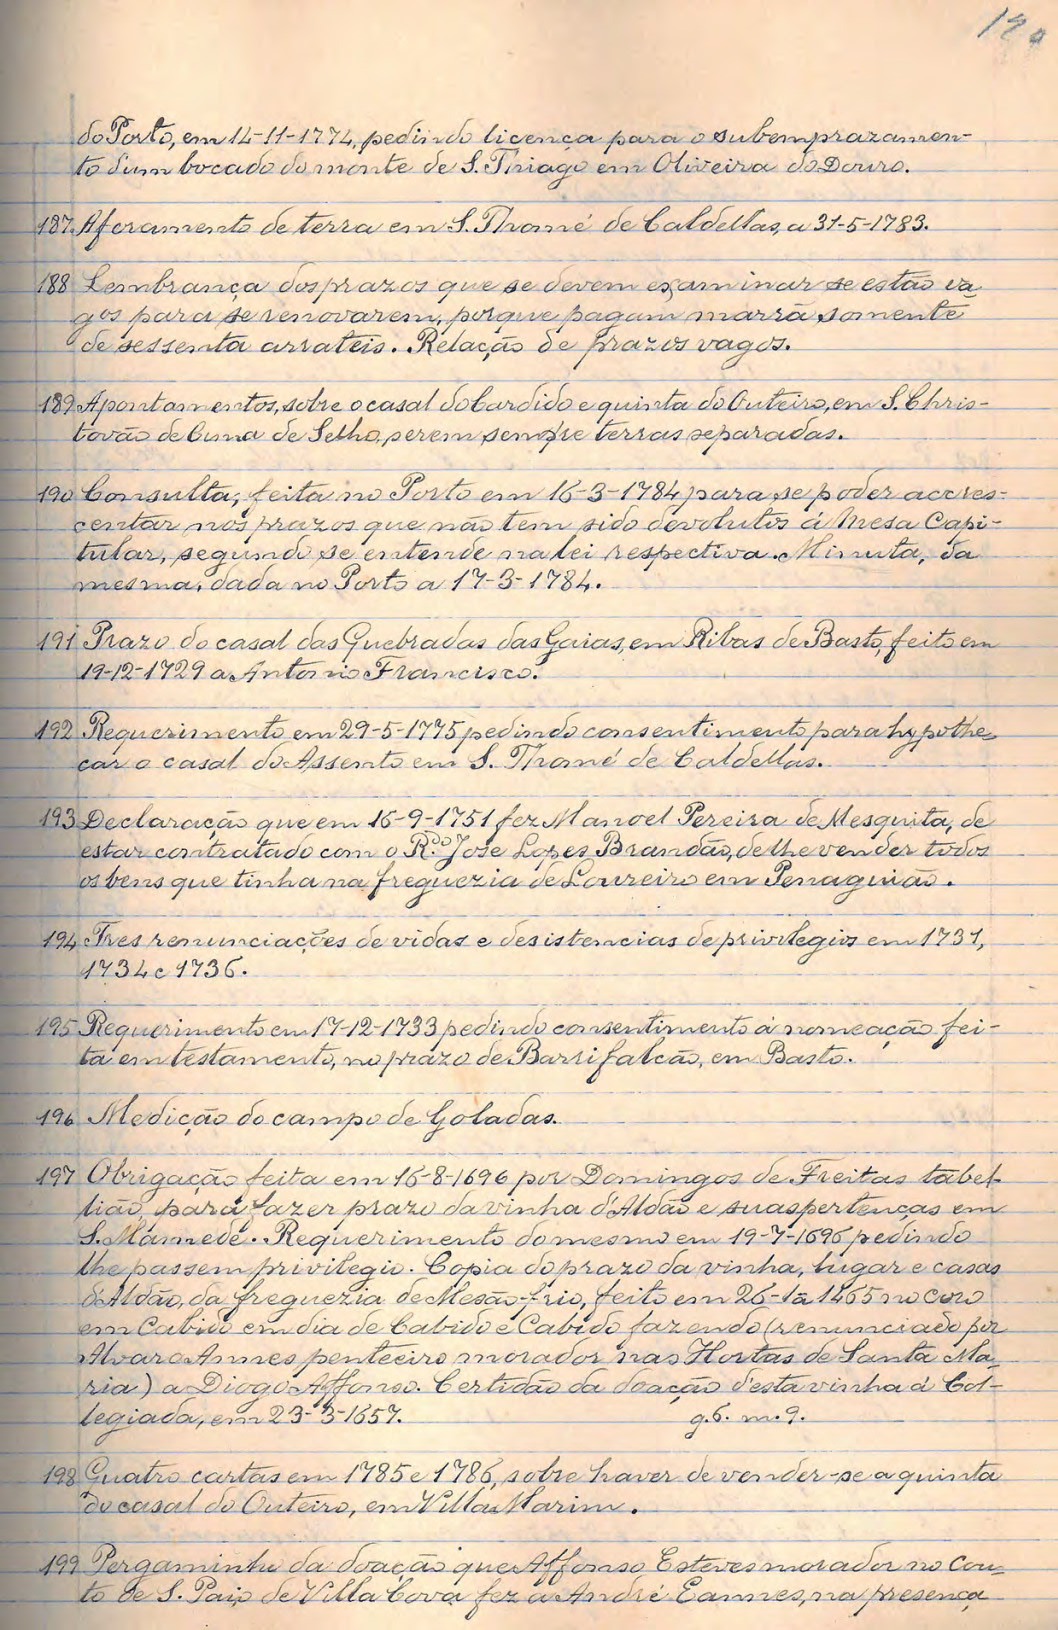 do Porto, em 14-11-1774, pedindo licença para o subemprazamen-
to d'um bocado do monte de S. Thiago em Oliveira do Douro.
187 Aforamento de terra em S. Thomé de Caldellas, a 31-5-1783.
188 Lembrança dos prazos que se devem examinar se estão va-
gos para se renovarem, porque pagam marrã somente
de sessenta arrateis. Relação de prazos vagos.
189 Apontamentos, sobre o casal do Cardido e quinta do Outeiro, em S. Chris-
tovão de Cima de Selho, serem sempre terras separadas.
190 Consulta, feita no Porto em 16-3-1784 para se poder accres-
centar nos prazos que não tem sido devolutos á Mesa Capi-
tular, segundo se entende na lei respectiva. Minuta, da
mesma, dada no Porto a 17-3-1784.
191 Prazo do casal das Quebradas das Gaias, em Ribas de Basto, feito em
19-12-1729 a Antonio Francisco.
192 Requerimento em 29-5-1775 pedindo consentimento para hypothe-
car o casal do Assento em S. Thomé de Caldellas.
193 Declaração que em 16-9-1751 fez Manoel Pereira de Mesquita, de
estar contratado com o R.do José Lopes Brandão, de lhe vender todos
os bens que tinha na freguezia de Loureiro em Penaguião.
194 Tres renunciações de vidas e desistencias de privilegios em 1731,
1734 e 1736.
195 Requerimento em 17-12-1733 pedindo consentimento á nomeação fei-
ta em testamento, no prazo de Barrifalcão, em Basto.
196 Medição do campo de Goladas.
197 Obrigação feita em 16-8-1696 por Domingos de Freitas tabel-
lião, para fazer prazo da vinha d'Aldão e suas pertenças em
S. Mamede. Requerimento do mesmo em 19-7-1696 pedindo
lhe passem privilegio. Copia do prazo da vinha, lugar e casas
d'Aldão, da freguezia de Mesão-frio, feito em 26-1a 1465 no coro
em Cabido em dia de Cabido e Cabido fazendo (renunciado por
Alvaro Annes penteeiro morador nas Hortas de Santa Ma-
ria) a Diogo Affonso. Certidão da doação d'esta vinha á Col-
legiada, em 23-3-1657. g. 6. m. 9.
198 Quatro cartas em 1785 e 1786, sobre haver de vender-se a quinta
do casal do Outeiro, em Villa Marim.
199 Pergaminho da doação que Affonso Esteves morador no Cou-
to de S. Paio de Villa Cova fez a André Eannes, na presença